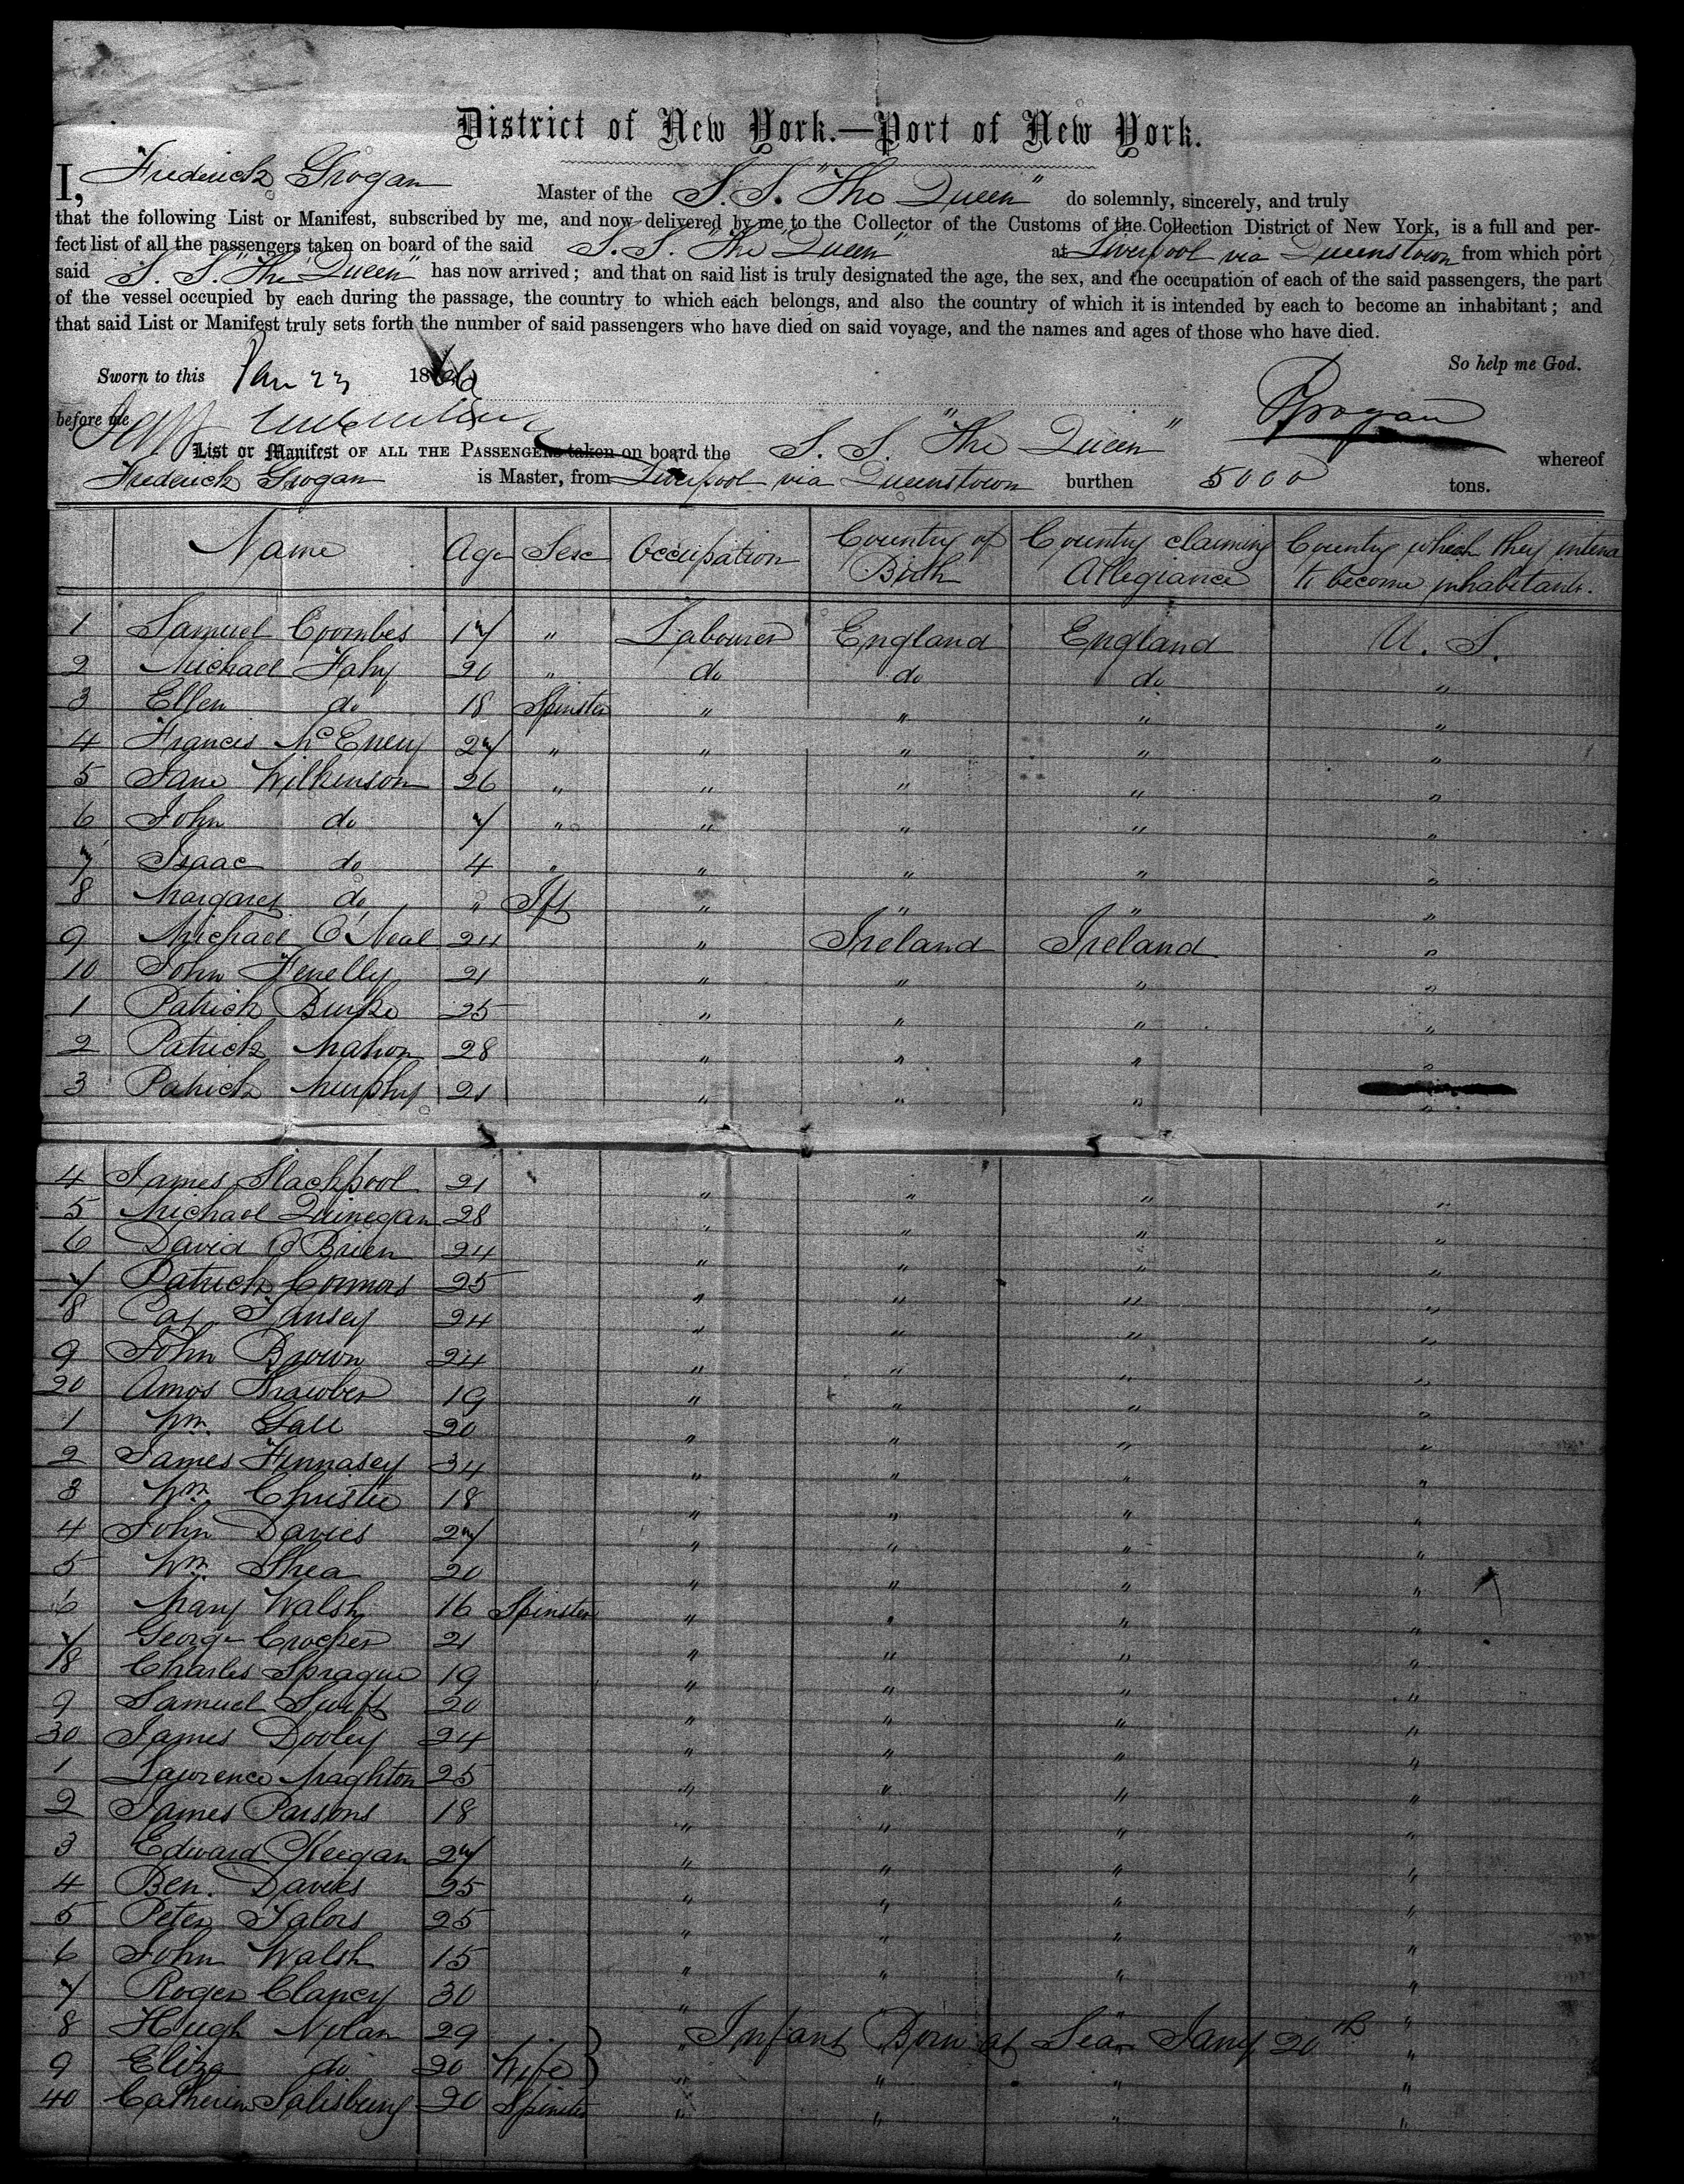 District of New York.—Port of New York.
I, Frederick Grogan Master of the S. S. "The Queen" do solemnly, sincerely, and truly
that the following List or Manifest, subscribed by me, and now delivered by me to the Collector of the Customs of the Collection District of New York, is a full and per-
fect list of all the passengers taken on board of the said S. S. "The Queen" at Liverpool via Queenstown from which port
said S. S. "The Queen" has now arrived; and that on said list is truly designated the age, the sex, and the occupation of each of the said passengers, the part
of the vessel occupied by each during the passage, the country to which each belongs, and also the country of which it is intended by each to become an inhabitant; and
that said List or Manifest truly sets forth the number of said passengers who have died on said voyage, and the names and ages of those who have died.
So help me God.
Sworn to this Jan 23 1866
before me
FGrogan
List or Manifest OF ALL THE PASSENGERS taken on board the S. S. "The Queen" whereof
Frederick Grogan is Master, from Liverpool via Queenstown burthen 5000 tons.
Name Age Sex Occupation Country of Birth Country claiming Allegiance Country which they intend to become inhabitants.
1 Samuel Coombes 17 " Labourer England England U. S.
2 Michael Fahy 20 " do do do "
3 Ellen do 18 Spinster " " " "
4 Francis McEnery 27 " " " " "
5 Jane Wilkinson 26 " " " " "
6 John do 7 " " " " "
7 Isaac do 4 " " " " "
8 Margaret do " Ift " " " "
9 Michael O'Neal 24 " Ireland Ireland "
10 John Fenelly 21 " " " "
1 Patrick Burke 25 " " " "
2 Patrick Mahon 28 " " " "
3 Patrick Murphy 21 " " " "
4 James Slackpool 21 " " " "
5 Michael Quinegan 28 " " " "
6 David O'Brien 24 " " " "
7 Patrick Connors 25 " " " "
8 Tansey 24 " " " "
9 John Brown 24 " " " "
20 Amos 19 " " " "
1 Wm. Gall 20 " " " "
2 James Hennasey 34 " " " "
3 Wm. Christie 18 " " " "
4 John Davies 27 " " " "
5 Wm. Shea 20 " " " "
6 Mary Walsh 16 Spinster " " " "
7 George Crocker 21 " " " "
8 Charles Sprague 19 " " " "
9 Samuel Swift 20 " " " "
30 James Dooley 24 " " " "
1 Lawrence Naghton 25 " " " "
2 James Parsons 18 " " " "
3 Edward Keegan 27 " " " "
4 Ben. Davies 25 " " " "
5 Peter Talors 25 " " " "
6 John Walsh 15 " " " "
7 Roger Clancy 30 " " " "
8 Hugh Nolan 29 " Infant Born at Sea Jany 20th "
9 Eliza do 20 Wife " " " "
40 Catherine Salisbury 20 Spinster " " " "